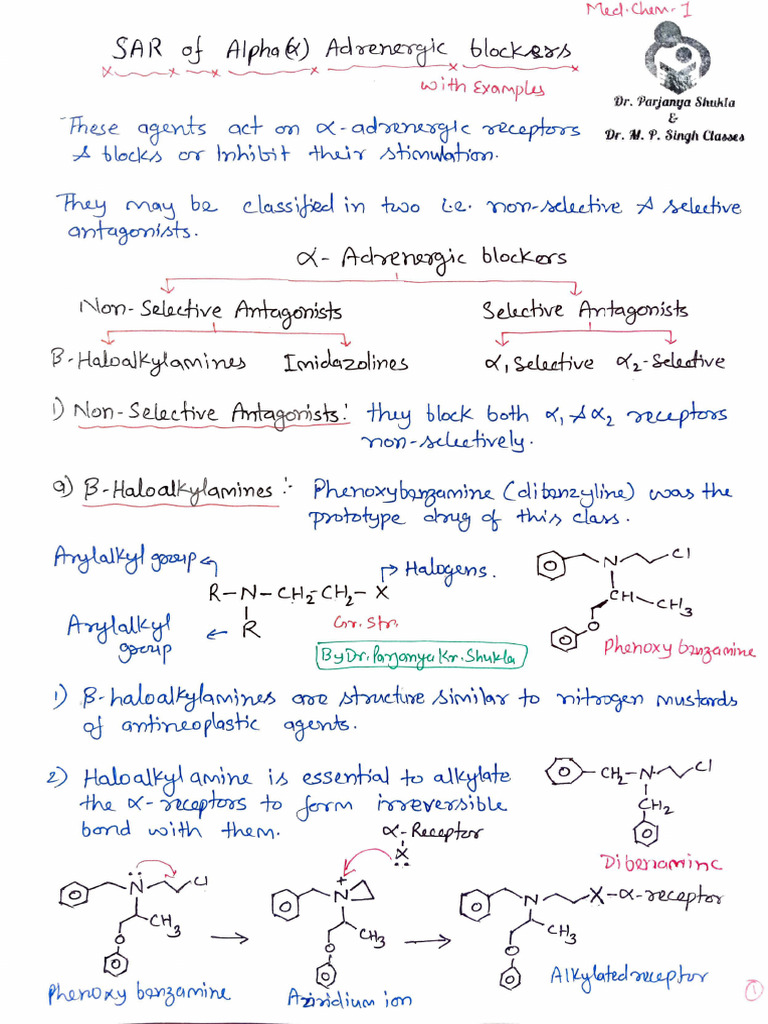 Med. Chem. 1
SAR of Alpha(α) Adrenergic blockers
with Examples
Dr. Parjanya Shukla
&
Dr. M. P. Singh Classes
These agents act on α-adrenergic receptors
& blocks or Inhibit their stimulation.
They may be classified in two i.e. non-selective & selective
antagonists.
α- Adrenergic blockers
Non-Selective Antagonists Selective Antagonists
β-Haloalkylamines Imidazolines α₁ Selective α₂-Selective
1) Non-Selective Antagonists: they block both α₁ & α₂ receptors
non-selectively.
a) β-Haloalkylamines :- Phenoxybenzamine (dibenzyline) was the
prototype drug of this class.
Arylalkyl group Halogens.
R-N-CH₂-CH₂-X
R
Arylalkyl
group
Gr. Str.
By Dr. Parjanya Kr. Shukla
N Cl
CH-CH₃
O
Phenoxy benzamine
1) β-haloalkylamines are structure similar to nitrogen mustards
of antineoplastic agents.
2) Haloalkyl amine is essential to alkylate
the α-receptors to form irreversible
bond with them.
CH₂-N Cl
CH₂
Dibenamine
α-Receptor
X
N Cl
CH₃
O
Phenoxy benzamine
+
N
CH₃
O
Aziridium ion
N X-α-receptor
CH₃
O
Alkylated receptor
1